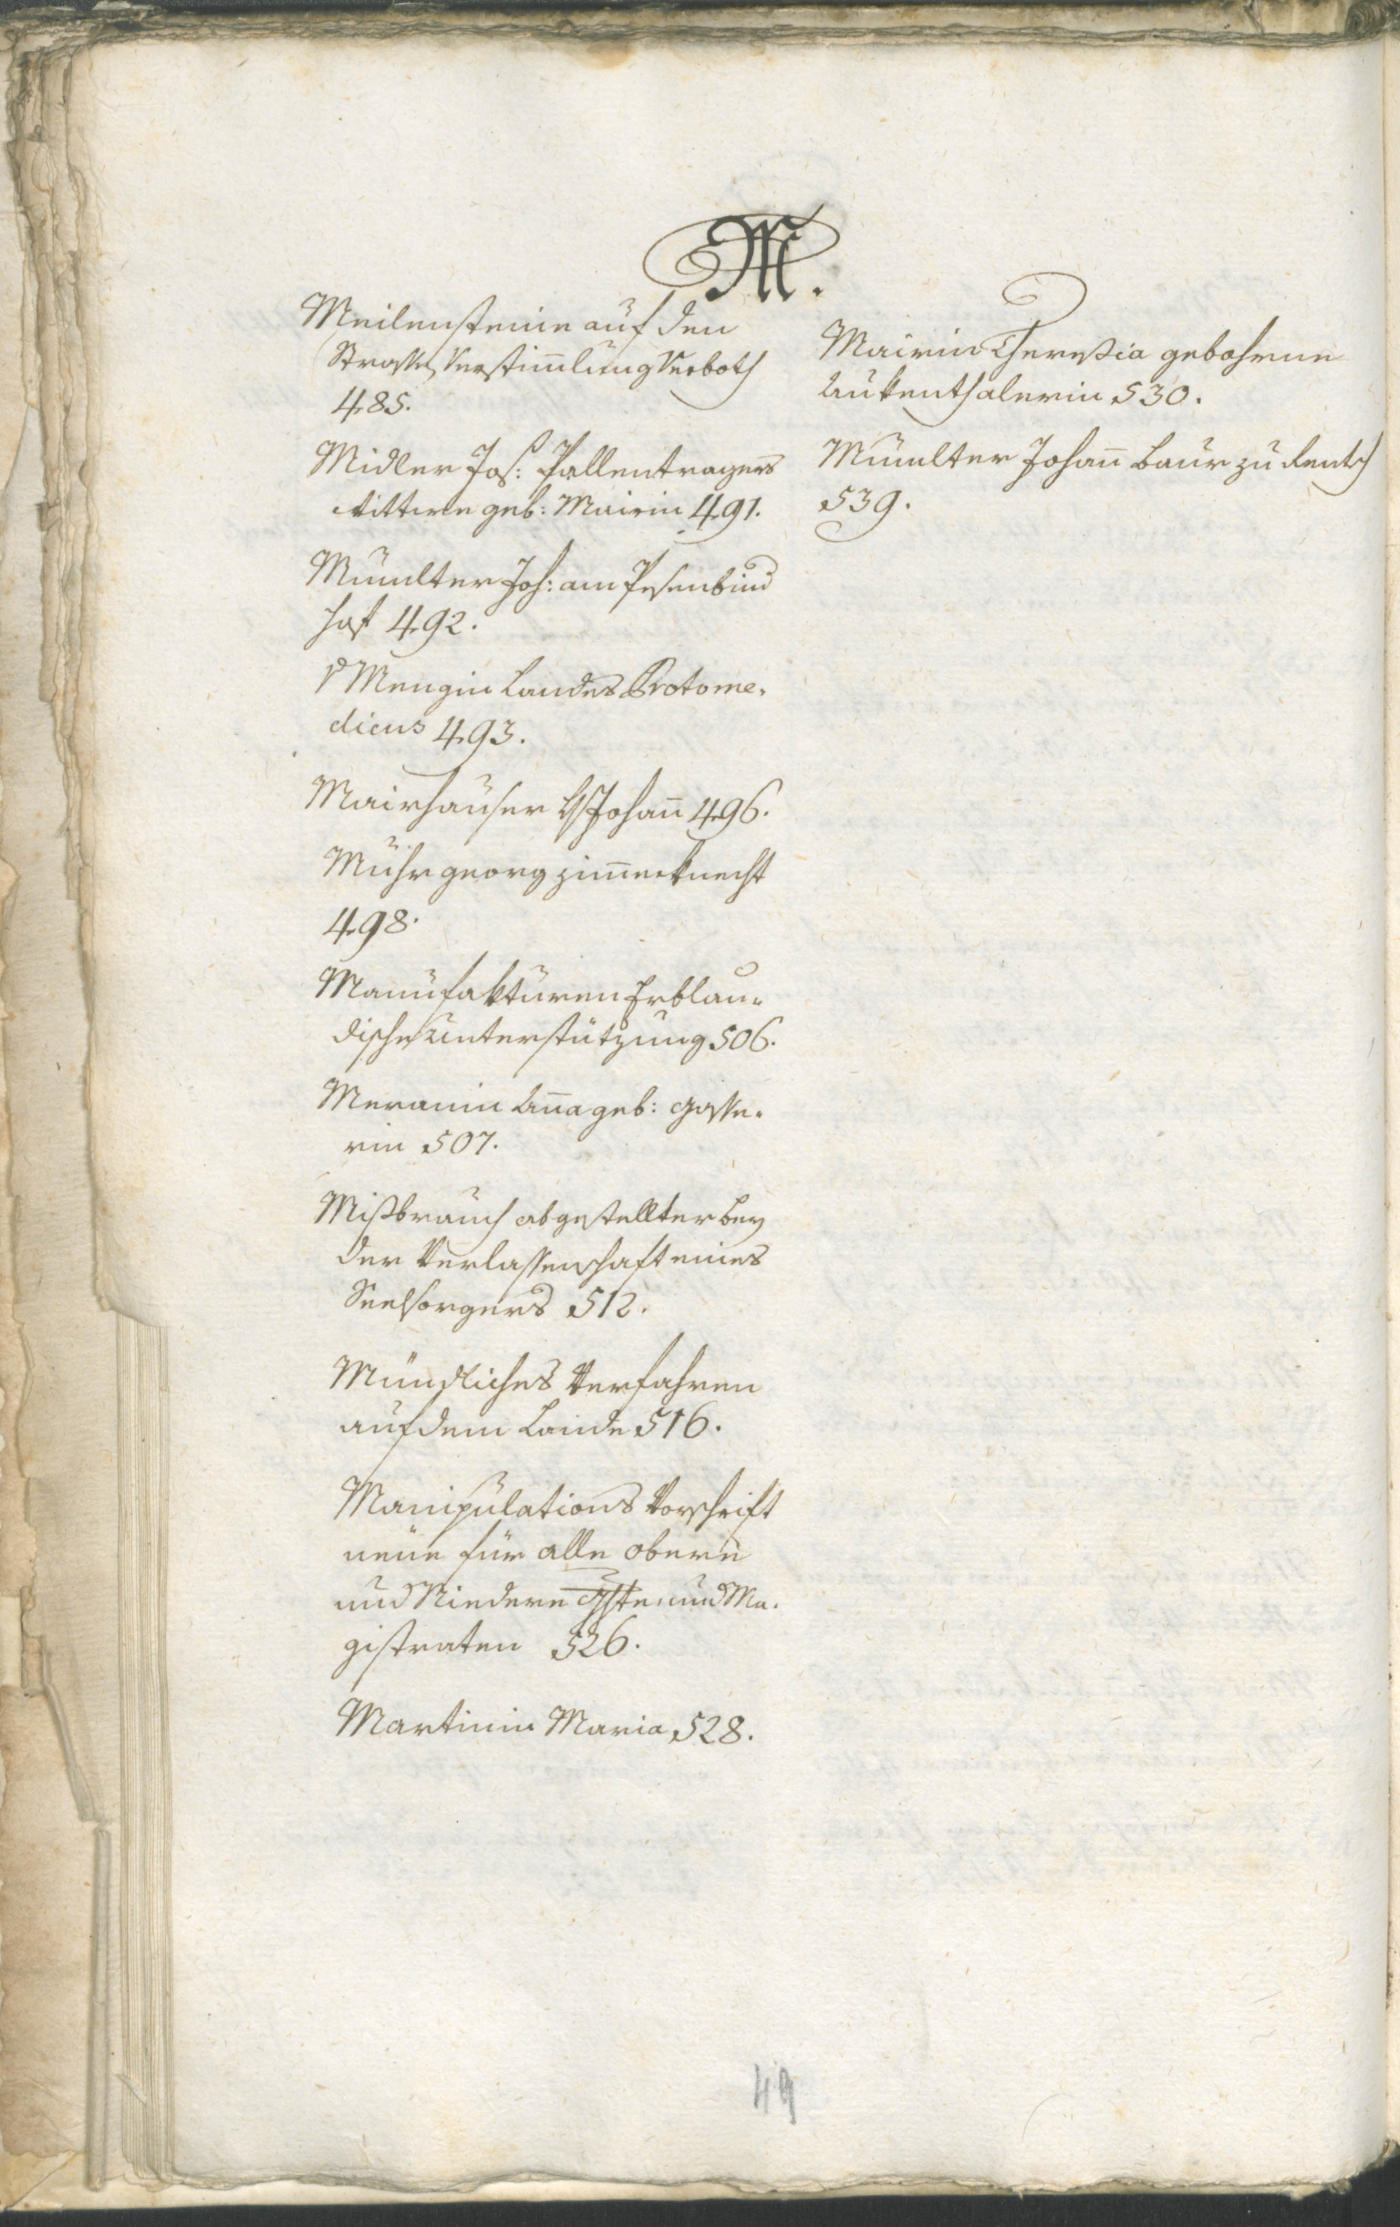 M.
Meilensteine auf den
Strassen Verstim̅lung Verboth
485.
Midler Jos: Pallentragers
Wittwe geb: Mairin 491.
Mumlter Joh: am Pesenbind
hof 492.
v Mengin Landes Protome-
dicus 493.
Mairhauser Johan̅ 496.
Muhr georg zim̅erknecht
498.
Manufakturen Erblän-
dische Unterstützung 506.
Meranin An̅a geb: Gasse-
rin 507.
Mißbrauch abgestellter bey
der Verlassenschaft eines
Seelsorgers 512.
Mündliches Verfahren
auf dem Lande 516.
Manipulations Vorschrift
neue für alle obere
und Niedere und Ma-
gistraten 526.
Martinin Maria 528.
Mairin Theresia gebohrne
Aukenthalerin 530.
Mumlter Johan̅ Baur zu Rentsch
539.
49